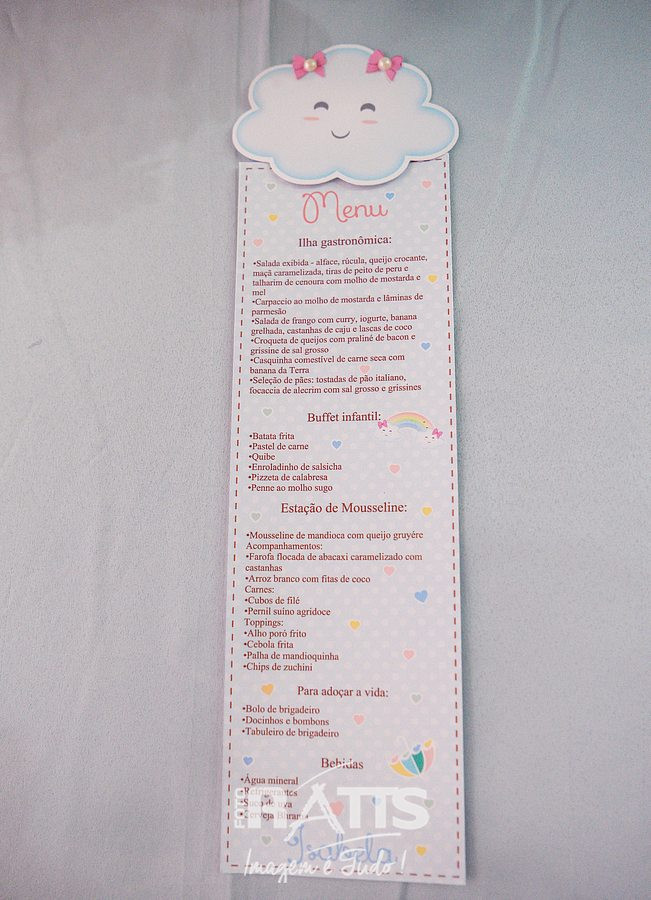 Menu
Ilha gastronômica:
•Salada exibida - alface, rúcula, queijo crocante,
maçã caramelizada, tiras de peito de peru e
talharim de cenoura com molho de mostarda e
mel
•Carpaccio ao molho de mostarda e lâminas de
parmesão
•Salada de frango com curry, iogurte, banana
grelhada, castanhas de caju e lascas de coco
•Croqueta de queijos com praliné de bacon e
grissine de sal grosso
•Casquinha comestível de carne seca com
banana da Terra
•Seleção de pães: tostadas de pão italiano,
focaccia de alecrim com sal grosso e grissines
Buffet infantil:
•Batata frita
•Pastel de carne
•Quibe
•Enroladinho de salsicha
•Pizzeta de calabresa
•Penne ao molho sugo
Estação de Mousseline:
•Mousseline de mandioca com queijo gruyére
Acompanhamentos:
•Farofa flocada de abacaxi caramelizado com
castanhas
•Arroz branco com fitas de coco
Carnes:
•Cubos de filé
•Pernil suíno agridoce
Toppings:
•Alho poró frito
•Cebola frita
•Palha de mandioquinha
•Chips de zuchini
Para adoçar a vida:
•Bolo de brigadeiro
•Docinhos e bombons
•Tabuleiro de brigadeiro
Bebidas
•Água mineral
•Refrigerantes
•Suco de uva
•Cerveja
Isabela
FOTO RATTS
Imagem é Tudo!